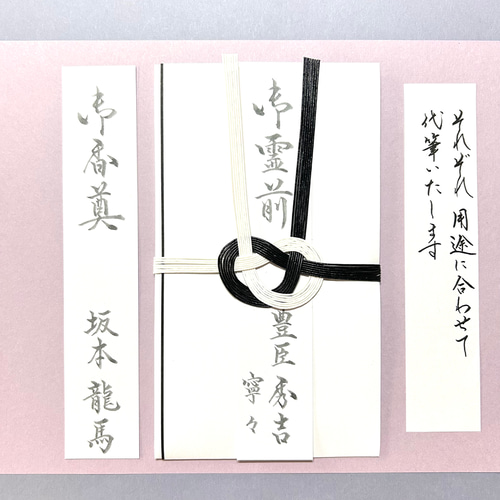 御香奠
坂本龍馬
御霊前
豊臣秀吉
寧々
それぞれ用途に合わせて
代筆いたします